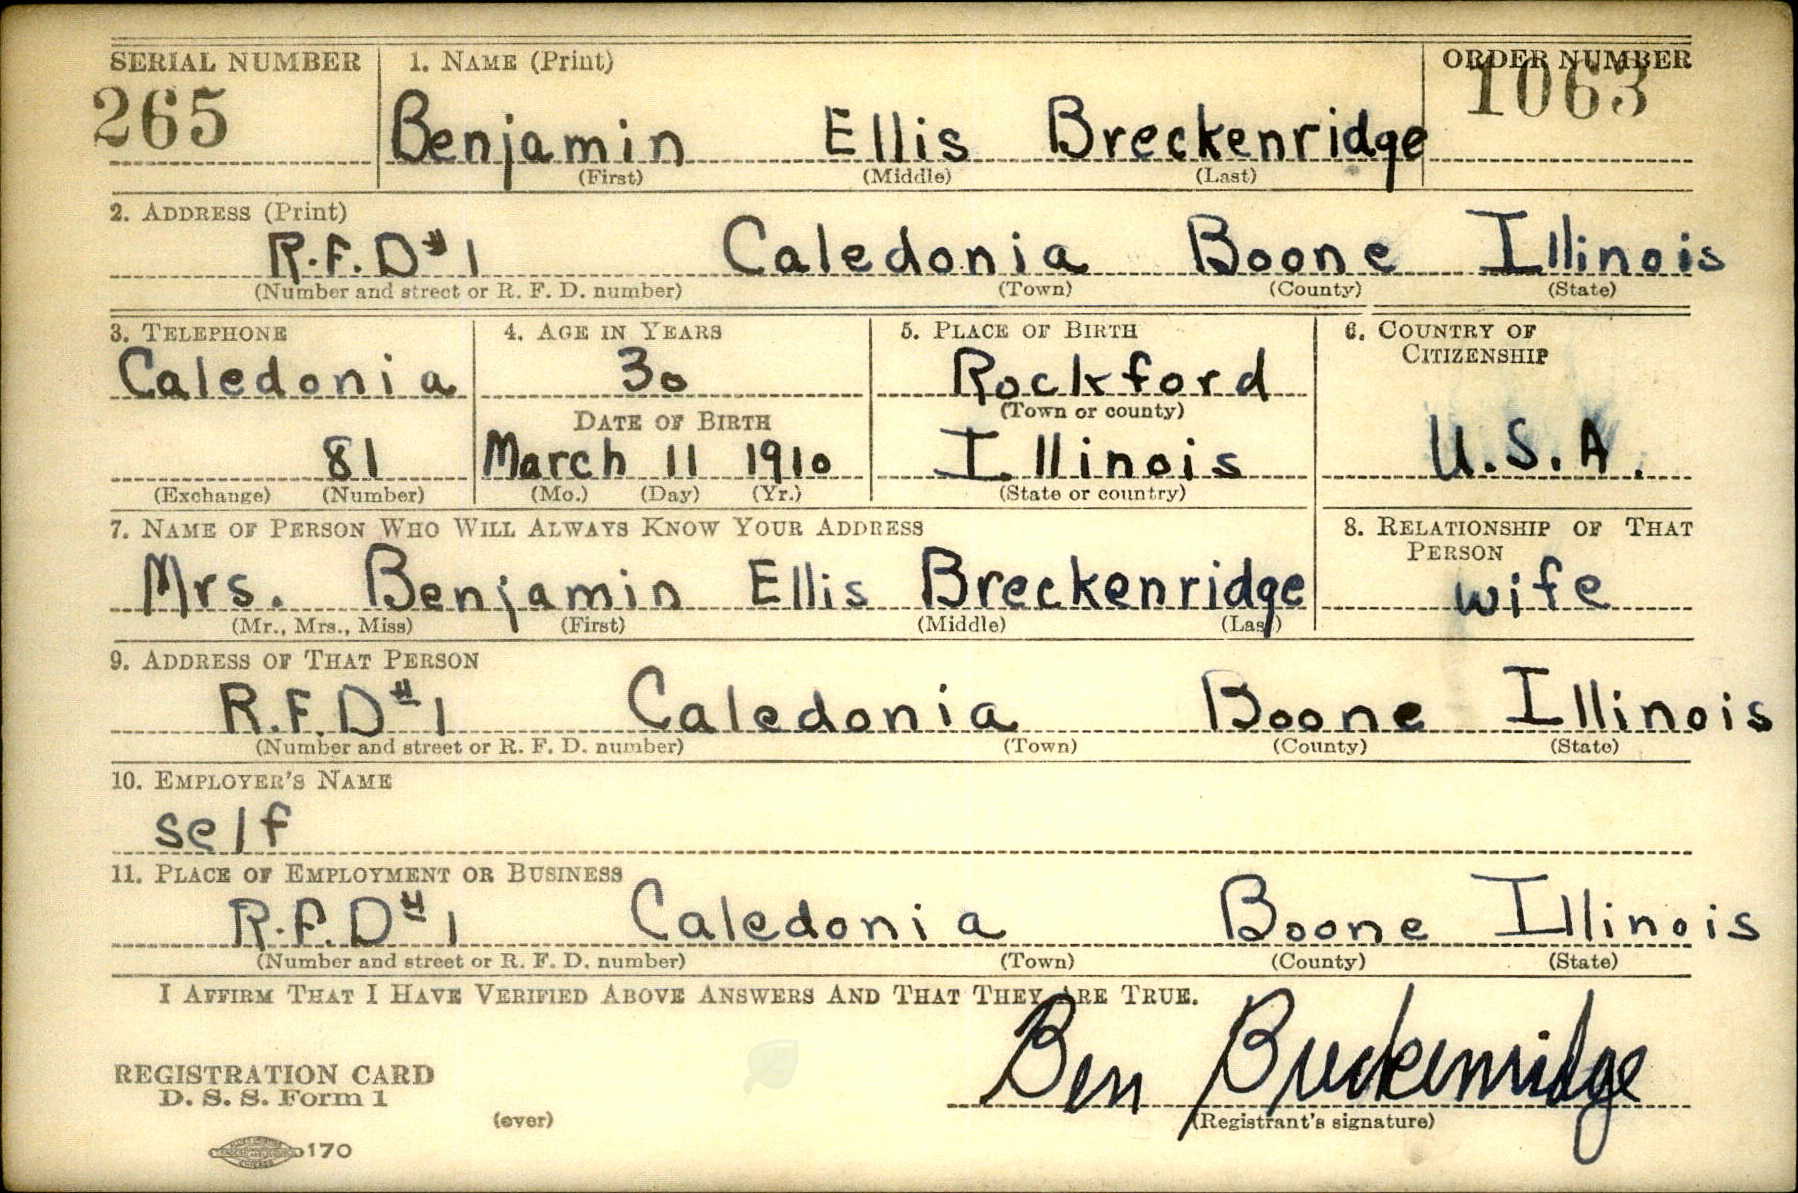 SERIAL NUMBER 1. NAME (Print) ORDER NUMBER
265 Benjamin Ellis Breckenridge 1063
(First) (Middle) (Last)
2. ADDRESS (Print)
R.F.D #1 Caledonia Boone Illinois
(Number and street or R. F. D. number) (Town) (County) (State)
3. TELEPHONE 4. AGE IN YEARS 5. PLACE OF BIRTH 6. COUNTRY OF
CITIZENSHIP
Caledonia 30 Rockford
(Town or county)
DATE OF BIRTH
81 March 11 1910 Illinois U.S.A.
(Exchange) (Number) (Mo.) (Day) (Yr.) (State or country)
7. NAME OF PERSON WHO WILL ALWAYS KNOW YOUR ADDRESS 8. RELATIONSHIP OF THAT
PERSON
Mrs. Benjamin Ellis Breckenridge wife
(Mr., Mrs., Miss) (First) (Middle) (Last)
9. ADDRESS OF THAT PERSON
R.F.D #1 Caledonia Boone Illinois
(Number and street or R. F. D. number) (Town) (County) (State)
10. EMPLOYER'S NAME
self
11. PLACE OF EMPLOYMENT OR BUSINESS
R.F.D #1 Caledonia Boone Illinois
(Number and street or R. F. D. number) (Town) (County) (State)
I AFFIRM THAT I HAVE VERIFIED ABOVE ANSWERS AND THAT THEY ARE TRUE.
Ben Breckenridge
REGISTRATION CARD
D. S. S. Form 1
(over) (Registrant's signature)
170